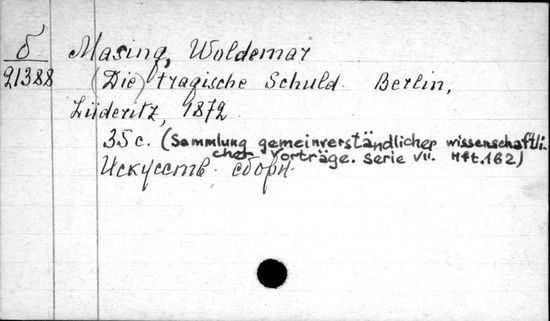 б Masing, Woldemar
21388 (Die) tragische Schuld. Berlin,
Lüderitz, 1872.
35 с. (Sammlung gemeinverständlicher wissenschaftli-
cher Vorträge. Serie VII. Hft. 162)
Искусств. сборн.